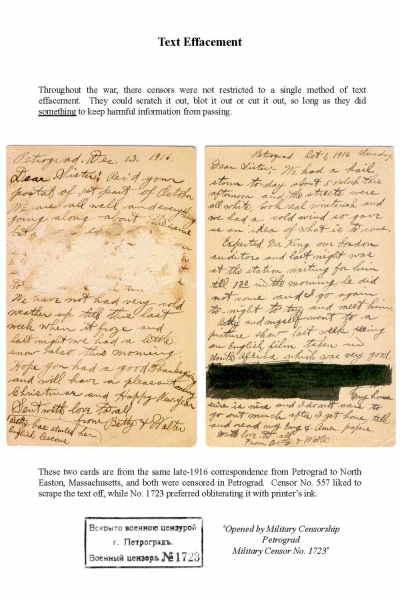 Text Effacement
Throughout the war, there censors were not restricted to a single method of text
effacement. They could scratch it out, blot it out or cut it out, so long as they did
something to keep harmful information from passing.
Petrograd, Dec. 13, 1916.
Dear Sister: Rec'd your
postal of 1st part of October
We are all well and everything
going along about the same
We have not had very cold
weather up till this last
week when it froze and
last night we had a little
snow also this morning.
Hope you had a good Thanksgiving
and will have a pleasant
Christmas and Happy New Year
Sent with love to all
from Betty & Walter
Betty has started her
English lessons
Petrograd Oct 1, 1916 Sunday
Dear Sister, We had a hail
storm to-day about 5 o'clock this
afternoon and the streets were
all white. Look real winterish and
we had a cold wind so gave
us an idea of what is to come.
Expected Mr King our London
auditor and last night was
at the station waiting for him
till 1 30 in the morning, he did
not come and I go again
to-night to try and meet him
Betty and myself went to a
picture show last week seeing
an English film taken in
South Africa which was very good.
Eng house
sure is nice and I do not care to
go out much after I get home till
and read my Eng & Amer papers.
With love to all
from Betty & Walter
These two cards are from the same late-1916 correspondence from Petrograd to North
Easton, Massachusetts, and both were censored in Petrograd. Censor No. 557 liked to
scrape the text off, while No. 1723 preferred obliterating it with printer's ink.
Вскрыто военною цензурой
г. Петроградъ.
Военный цензоръ №1723
"Opened by Military Censorship
Petrograd
Military Censor No. 1723"